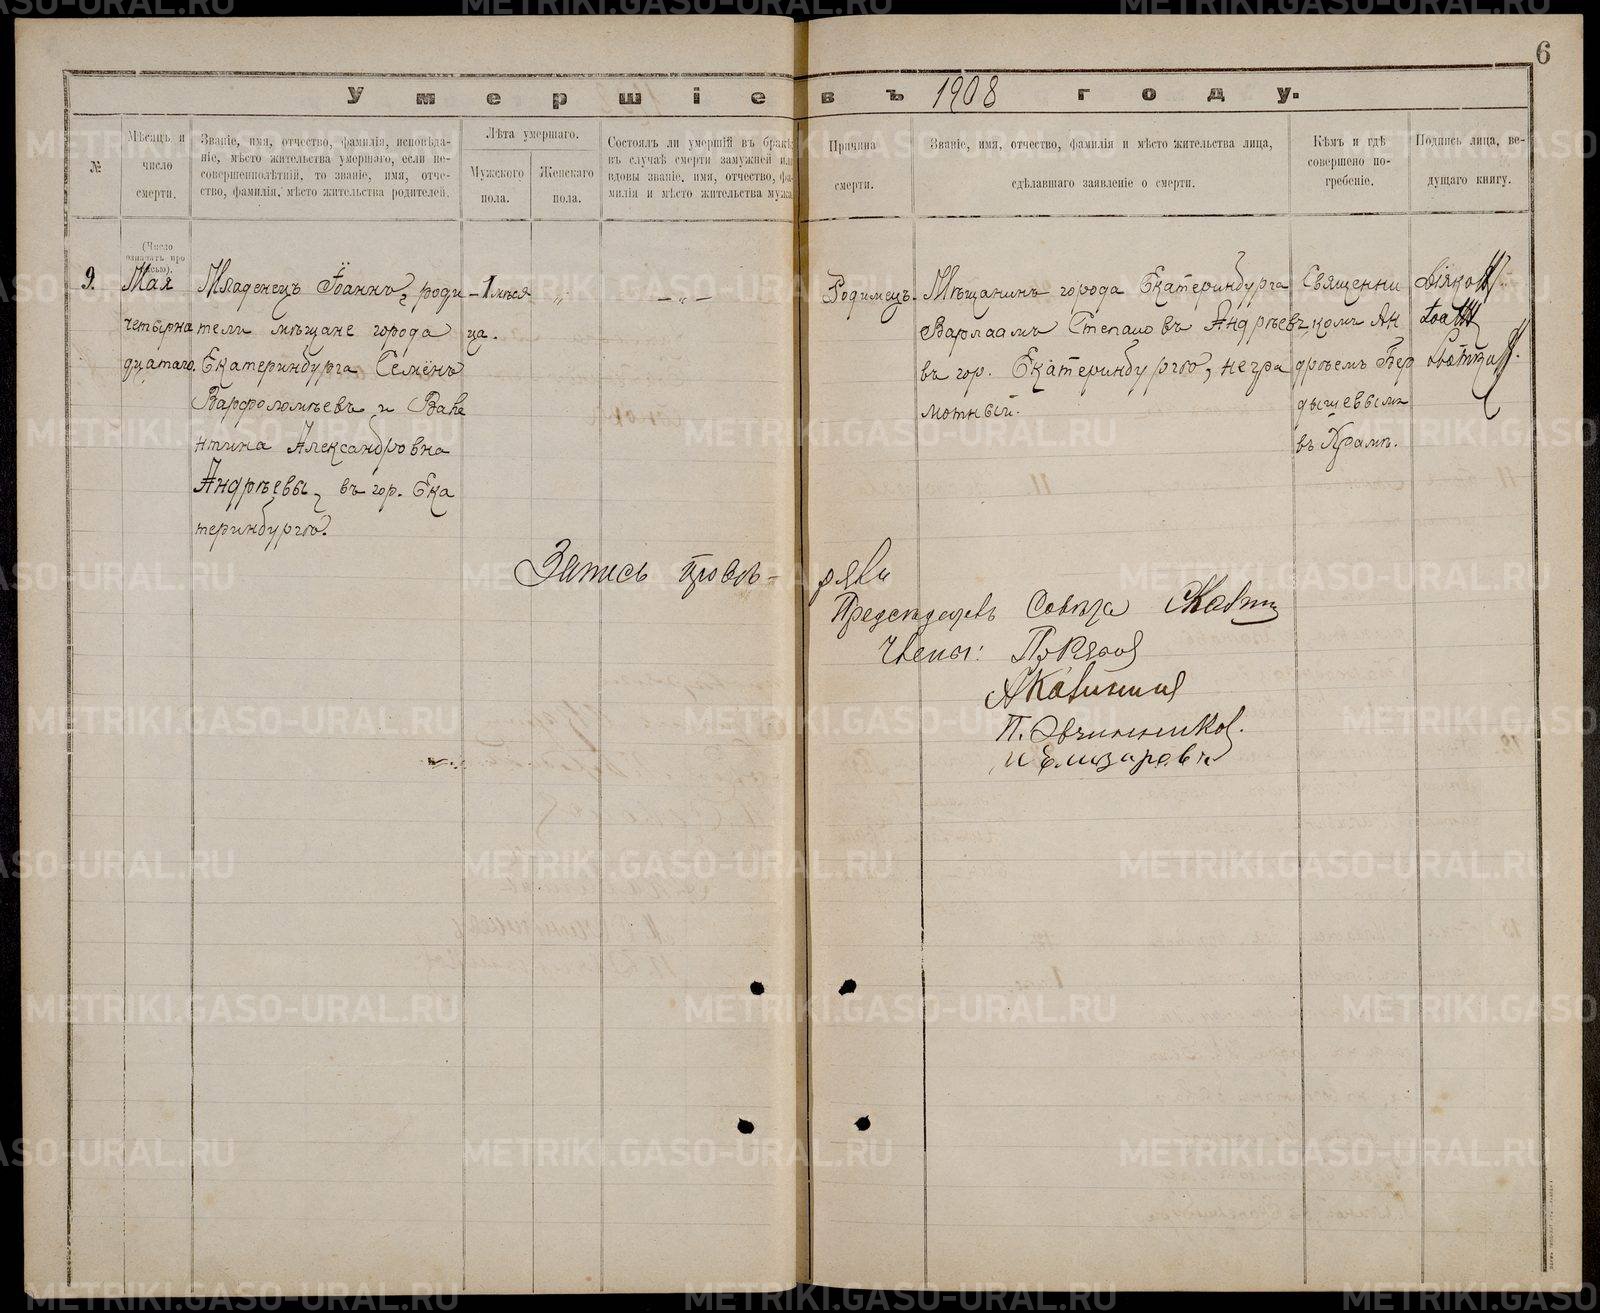 6
Умершіе въ 1908 году.
№
Мѣсяцъ и число смерти.
Званіе, имя, отчество, фамилія, исповѣда-
ніе, мѣсто жительства умершаго, если не-
совершеннолѣтній, то званіе, имя, отче-
ство, фамилія, мѣсто жительства родителей.
Лѣта умершаго.
Мужского пола.
Женскаго пола.
Состоялъ ли умершій въ бракѣ,
въ случаѣ смерти замужней или
вдовы званіе, имя, отчество, фа-
милія и мѣсто жительства мужа
Причина смерти.
Званіе, имя, отчество, фамилія и мѣсто жительства лица,
сдѣлавшаго заявленіе о смерти.
Кѣмъ и гдѣ
совершено по-
гребеніе.
Подпись лица, ве-
дущаго книгу.
(Число
означать про
писью).
9.
Мая
четырна
дцатаго.
Младенецъ Іоаннъ, роди
тели мѣщане города
Екатеринбурга Семёнъ
Варфоломѣевъ и Вале
нтина Александровна
Андрѣевы, въ гор. Ека
теринбургѣ.
1 мѣся
ца.
„
— „ —
Родимецъ.
Мѣщанинъ города Екатеринбурга
Варлаамъ Степановъ Андрѣевъ
въ гор. Екатеринбургѣ, негра
мотный.
Священни
комъ Ан
дрѣемъ Бер
дышевымъ
въ Храмѣ.
Запись провѣ-
ряли
Предсѣдатель Совѣта
Члены:
А Калинина
П. Овчинников.
И Елизаровъ
METRIKI.GASO-URAL.RU